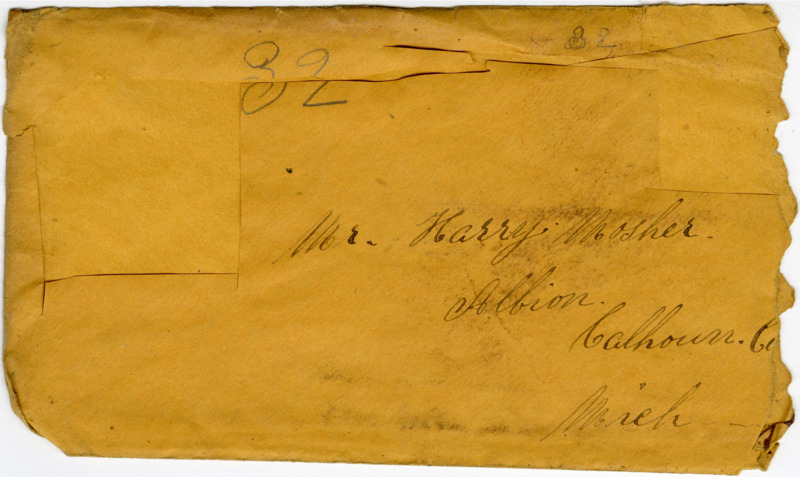 32
32
Mr. Harry Mosher.
Albion.
Calhoun. Co
Mich